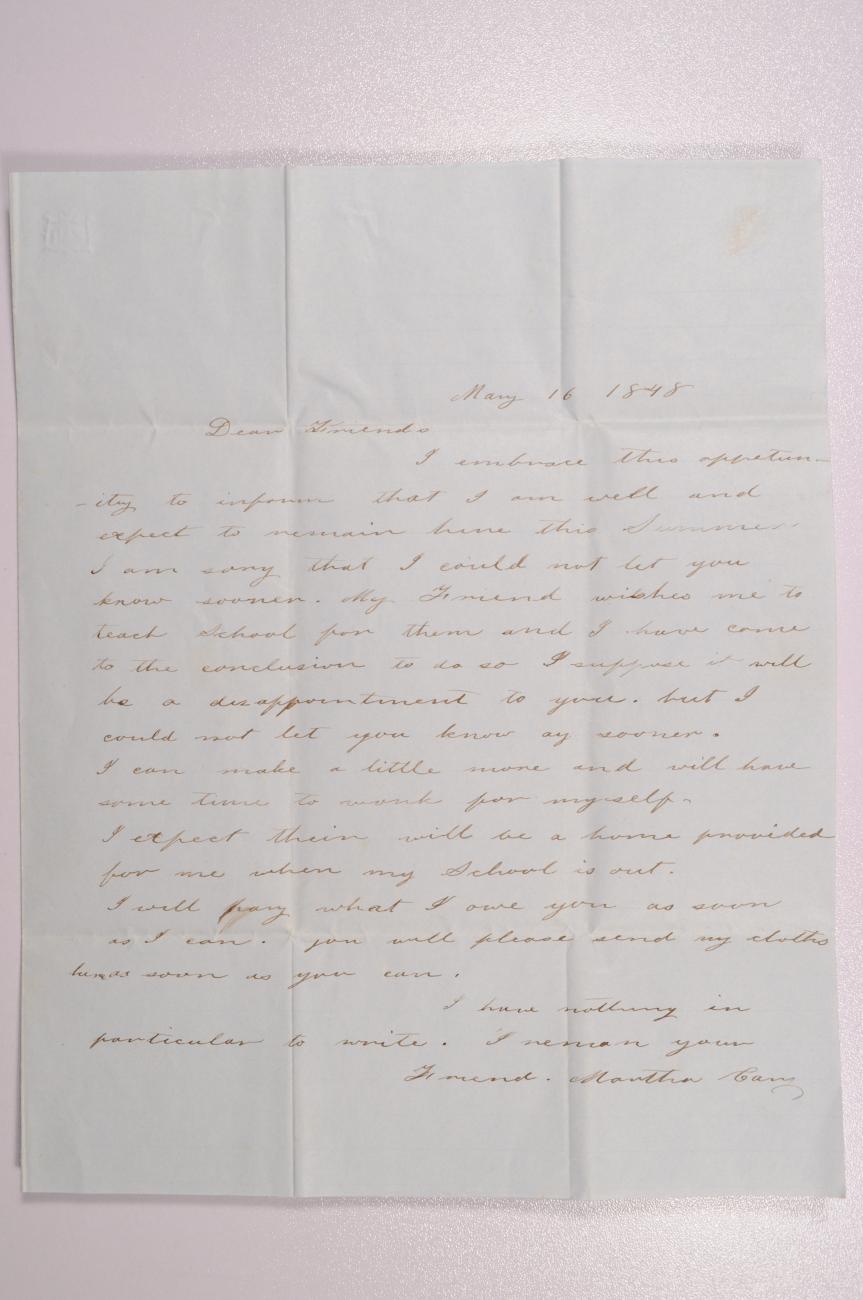 May 16 1848
Dear Friends
I embrace this oppetun-
-ity to inform that I am well and
expect to remain here this Summer
I am sory that I could not let you
know sooner. My Friend wishes me to
teach School for them and I have come
to the conclusion to do so I suppose it will
be a disappointment to you. but I
could not let you know ay sooner.
I can make a little more and will have
some time to work for myself.
I expect their will be a home provided
for me when my School is out.
I will pay what I owe you as soon
as I can. you will please send my cloths
as soon as you can.
I have nothing in
particular to write. I reman your
Friend. Martha